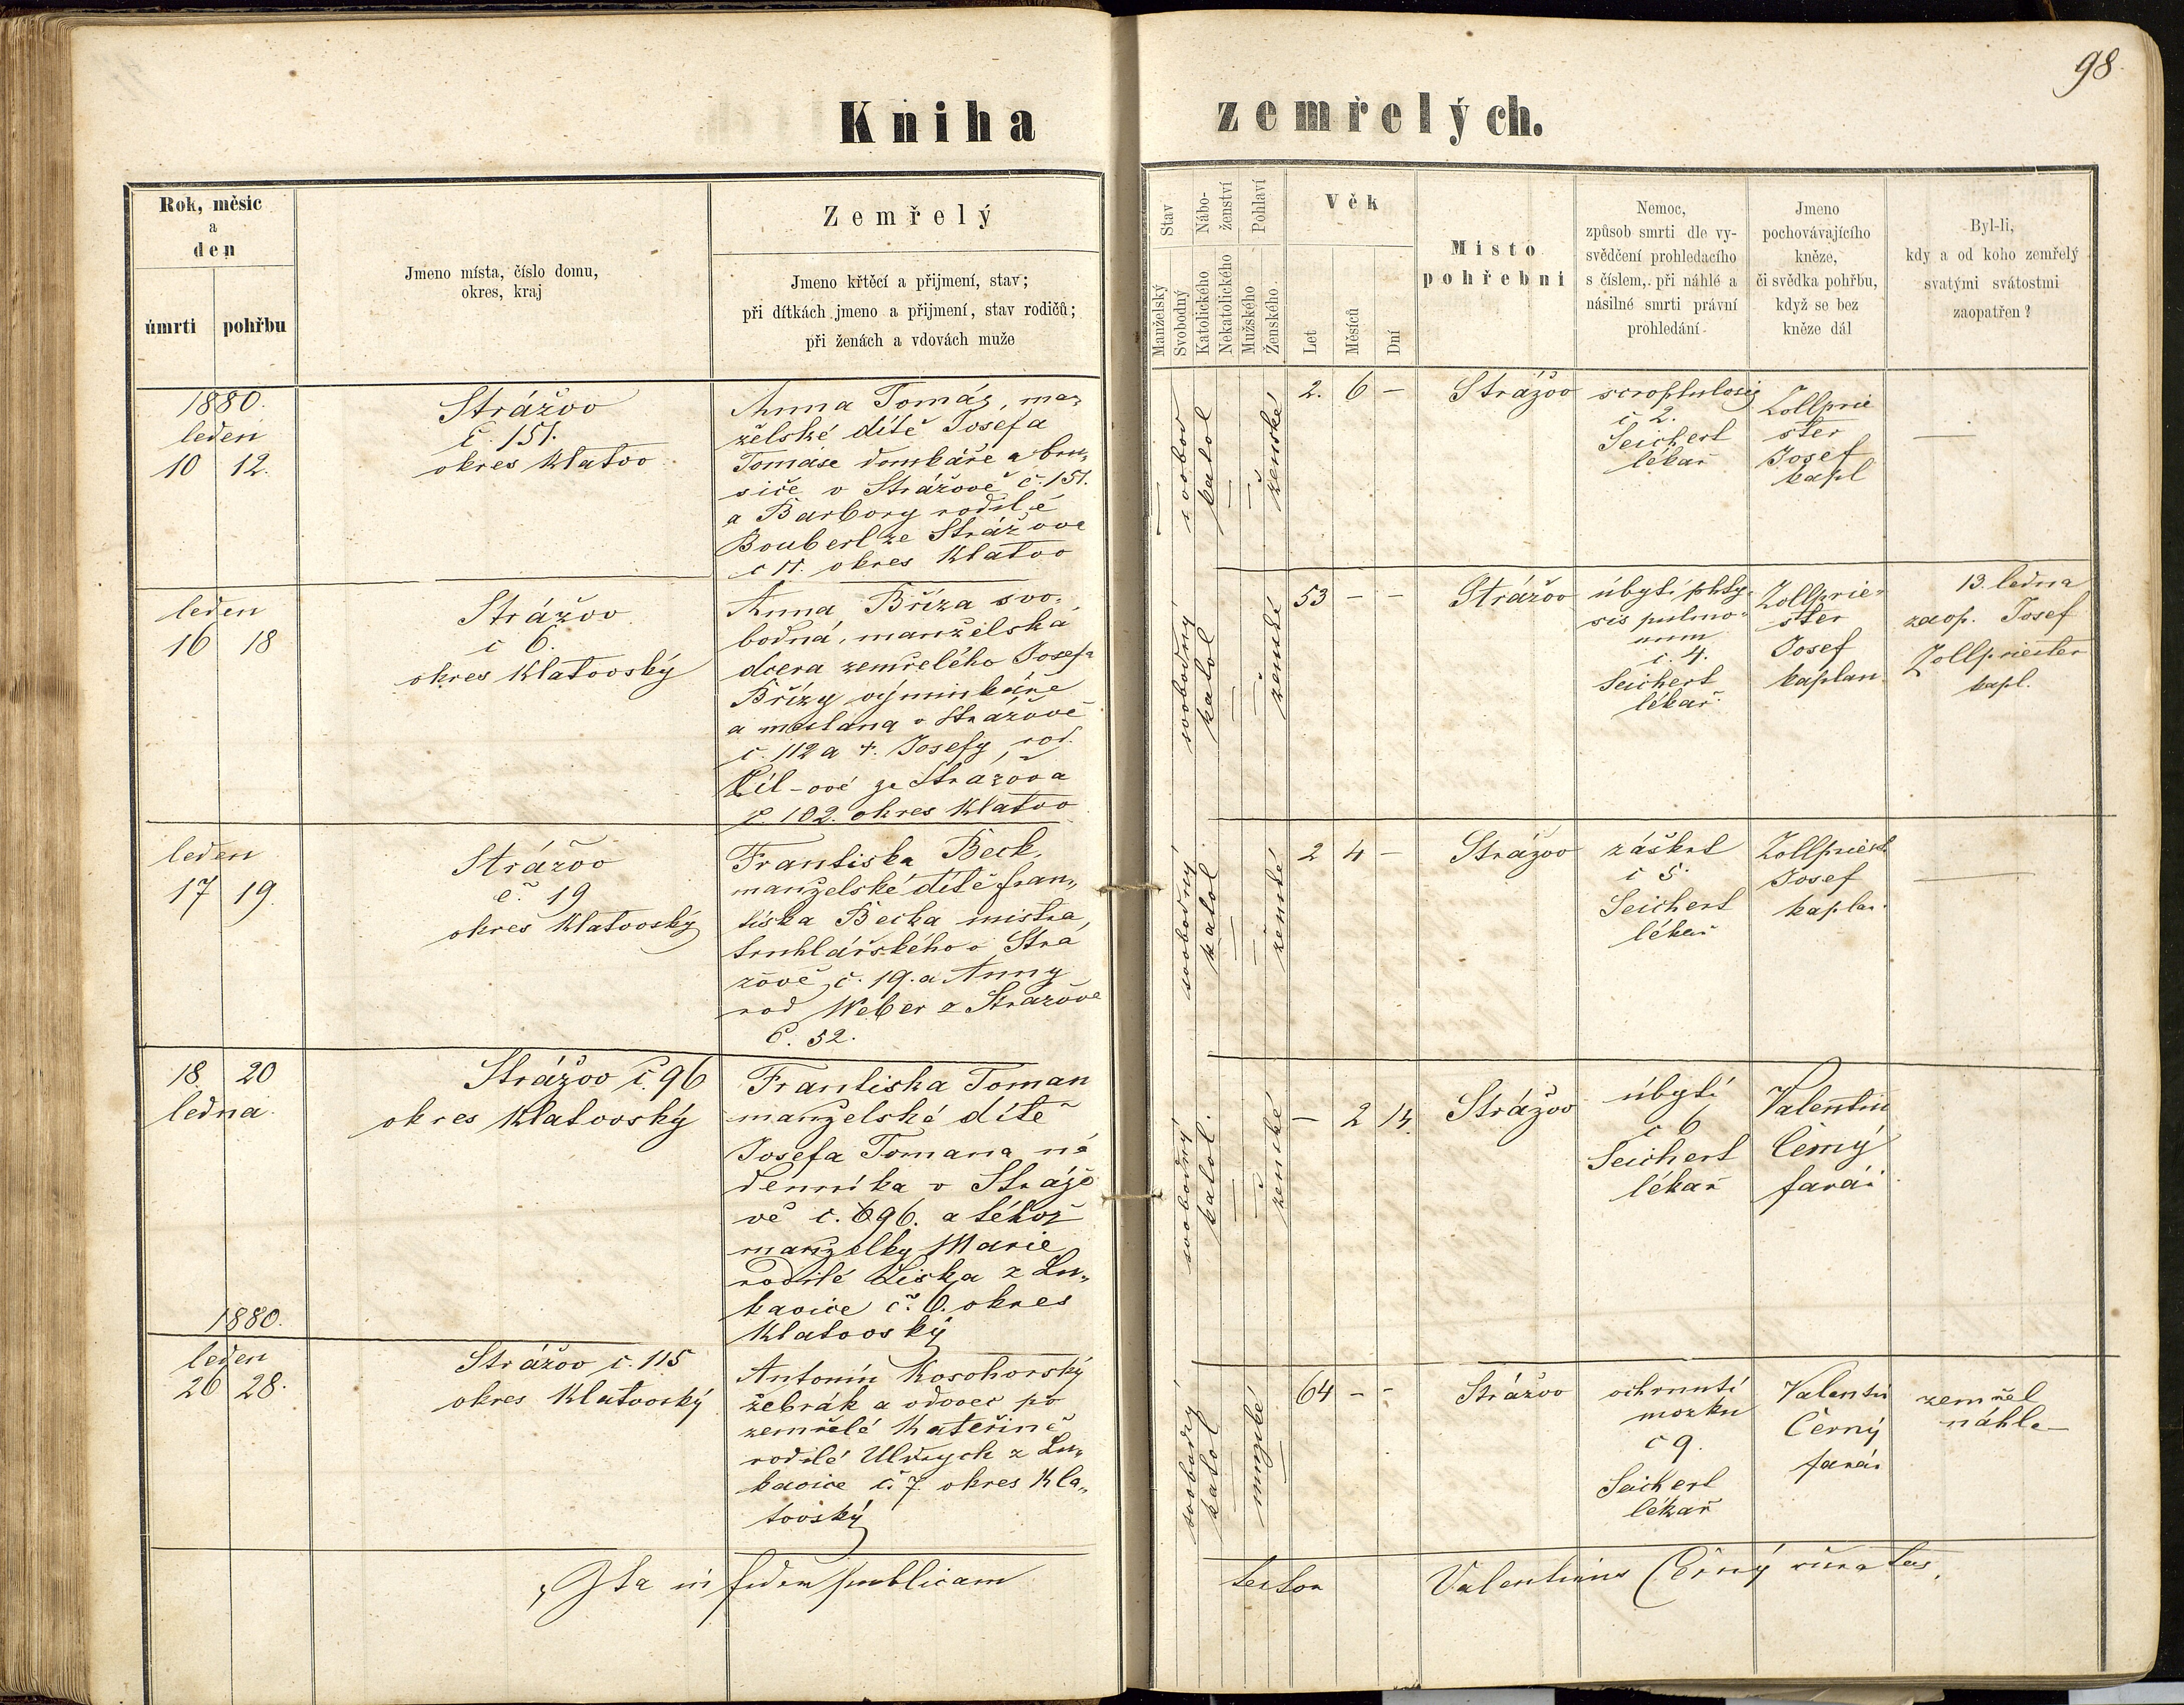 98
Kniha zemřelých.
Rok, měsíc
a
den
úmrti pohřbu
Jmeno místa, číslo domu,
okres, kraj
Zemřelý
Jmeno křtěcí a přijmení, stav;
při dítkách jmeno a přijmení, stav rodičů;
při ženách a vdovách muže
Stav
Manželský
Svobodný
Nábo-
ženství
Katolického
Nekatolického
Pohlaví
Mužského
Ženského
Věk
Let
Měsíců
Dní
Místo
pohřební
Nemoc,
způsob smrti dle vy-
svědčení prohledacího
s číslem, při náhlé a
násilné smrti právní
prohledání
Jmeno
pochovávajícího
kněze,
či svědka pohřbu,
když se bez
kněze dál
Byl-li,
kdy a od koho zemřelý
svatými svátostmi
zaopatřen?
1880.
leden
10 12.
Strážov
č. 151.
okres Klatov
Anna Tomáš, man-
želské dítě Josefa
Tomáše dombáře a bru-
siče v Strážově č. 151.
a Barbory rodilé
Bouberl ze Strážova
č 11. okres Klatov
svobod
katol
ženské
2. 6 -
Strážov
scrophulosis
č 2.
Seichert
lékař
Zollprie
ster
Josef
kapl
leden
16 18
Strážov
č 6.
okres Klatovský
Anna Bříza svo-
bodná, manželská
dcera zemřelého Josefa
Břízy výminkáře
a mešťana v Strážově
č. 112 a +. Josefy, rod.
-ové ze Strážova
č. 102. okres Klatov
svobodný
katol
ženské
53 - -
Strážov
úbytí phty-
sis pulmo-
num
č. 4.
Seichert
lékař
Zollprie-
ster
Josef
kaplan
13. ledna
zaop. Josef
Zollpriester
kapl.
leden
17 19.
Strážov
č. 19
okres Klatovský
Františka Beck,
manželské dítě Fran-
tiška Becka mistra
truhlářského v Strá
žově, č. 19. a Anny
rod Weber z Strážova
č. 52.
svobodný
katol.
ženské
2 4 -
Strážov
záškrt
č 5.
Seichert
lékař
Zollpriest
Josef
kaplan
18 20
ledna.
Strážov č. 96
okres Klatovský
Františka Toman
manželské dítě
Josefa Tomana ná
denníka v Strážo
vě č. 96. a téhož
manželky Marie
rodilé Liška z Lu-
kavice č. 6. okres
Klatovský
svobodný
katol.
ženské
- 2 14.
Strážov
úbytí
č 6
Seichert
lékař
Valentin
Černý
farář
1880.
leden
26 28.
Strážov č. 115
okres Klatovský
Antonín Kosohorský
žebrák a vdovec po
zemřelé Kateřině
rodilé Uldrych z Lu-
kavice č. 7. okres Kla-
tovský
svobodný
katol
mužské
64 - -
Strážov
ochrnutí
mozku
č 9.
Seichert
lékař
Valentin
Černý
farář
zemřel
náhle
Ita in fidem publicam testor Valentinus Černý curatus.